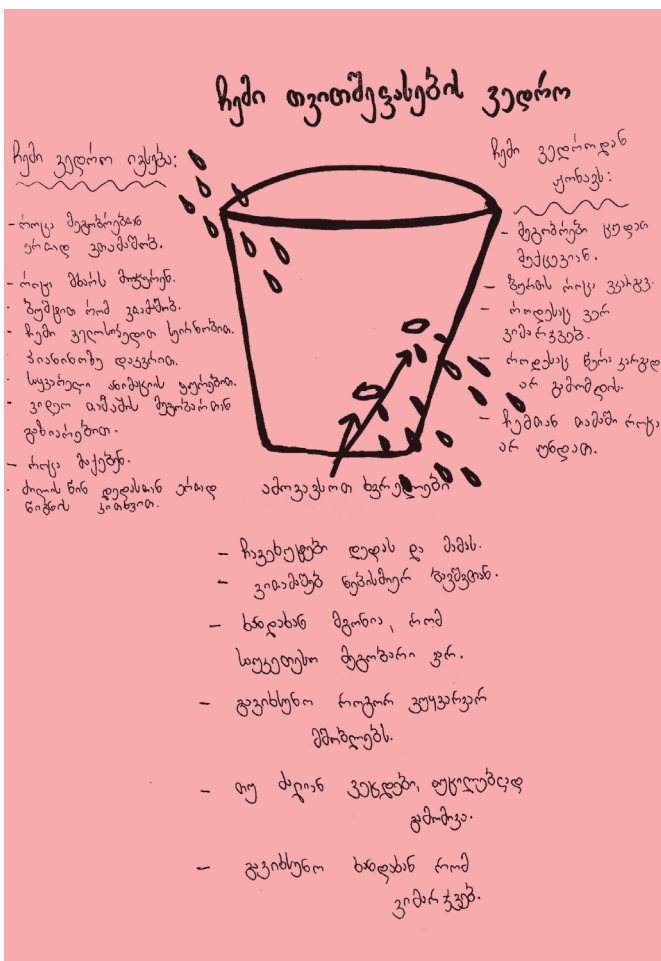 ჩემი თვითშეფასების ვედრო
ჩემი ვედრო ივსება:
- როცა მეგობრებთან
ერთად ვთამაშობ.
- როცა მხარს მიჭერენ.
- ბუშტით რომ ვთამაშობ.
- ჩემი ველოსიპედით სეირნობით.
პიანინოზე დაკვრით.
- საყვარელი ანიმაციის ყურებით.
- ვიდეო თამაშის მეგობართან
გაზიარებით.
- როცა მაქებენ.
ძილის წინ დედასთან ერთად
წიგნის კითხვით.
ჩემი ვედროდან
ჟონავს:
- მეგობრები ცუდად
მექცევიან.
- ბურთს როცა ვკარგავ.
- როდესაც ვერ
ვიმარჯვებ.
- როდესაც წერა კარგად
არ გამომდის.
- ჩემთან თამაში როცა
არ უნდათ.
ამოვავსოთ ხვრელები
- ჩავეხუტები დედას და მამას.
- ვითამაშებ ნებისმიერ ბავშვთან.
- ხანდახან მგონია, რომ
საუკეთესო მეგობარი ვარ.
- გავიხსენო როგორ ვუყვარვარ
მშობლებს.
- თუ ძალიან ვეცდები, აუცილებლად
გამომივა.
- გავიხსენო ხანდახან რომ
ვიმარჯვებ.